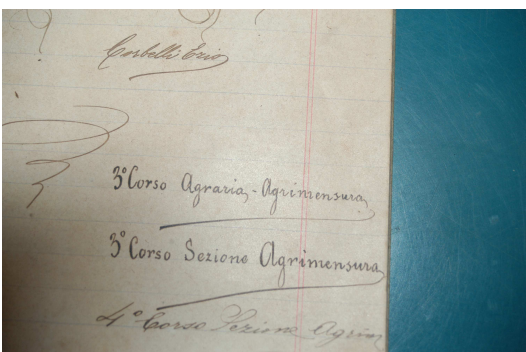 Corbelli Ezio
3º Corso Agraria-Agrimensura
3º Corso Sezione Agrimensura
4º Corso Sezione Agrim